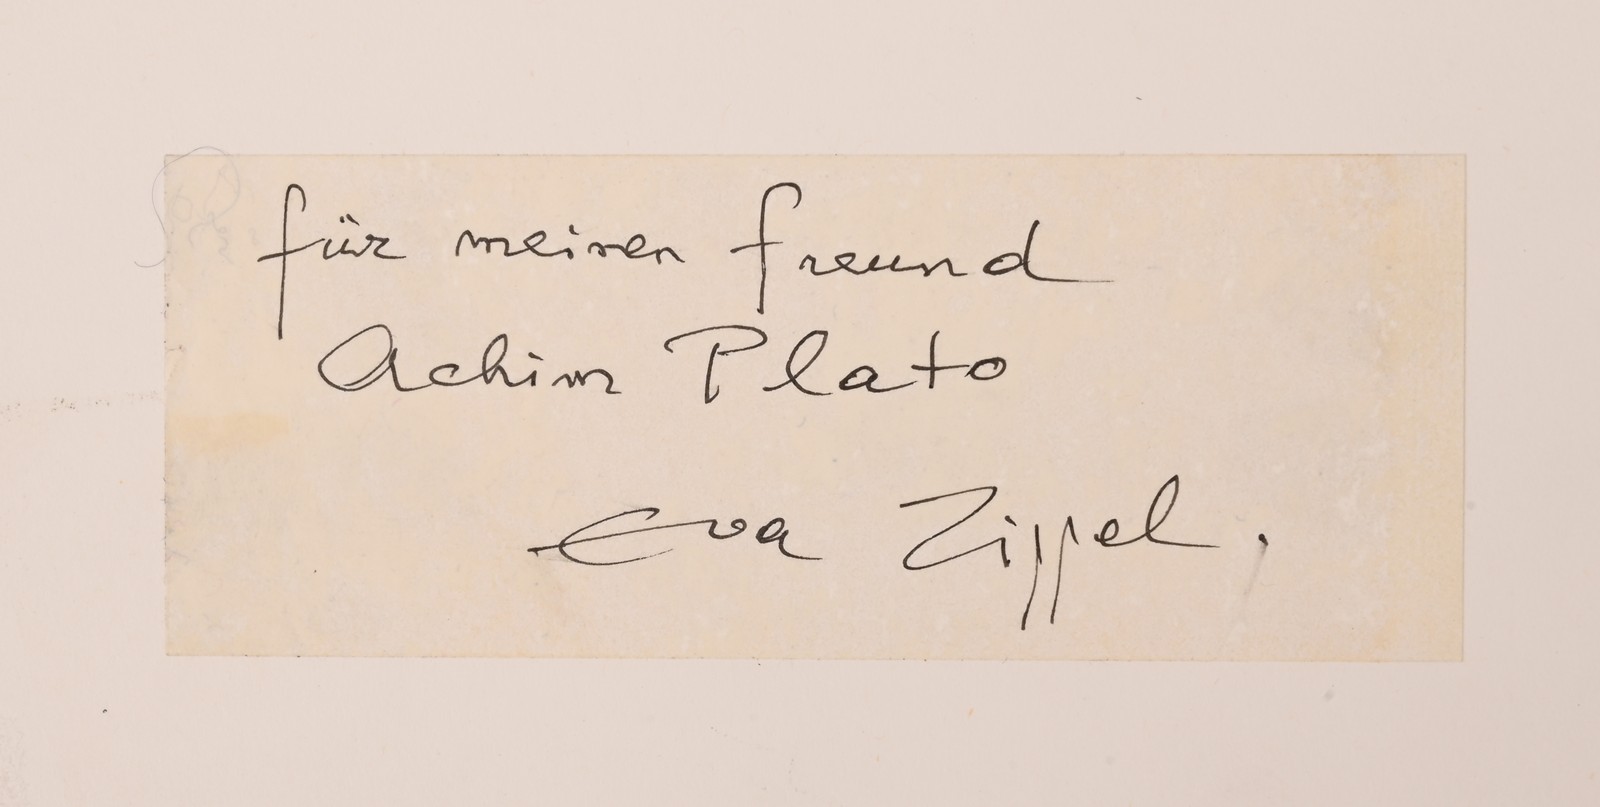 für meinen Freund
Achim Plato
Eva Zippel.